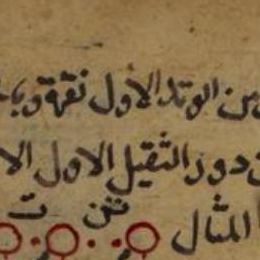 من الوتد الاول نقرة و
دور الثقيل الاول الا
المثال تن ت